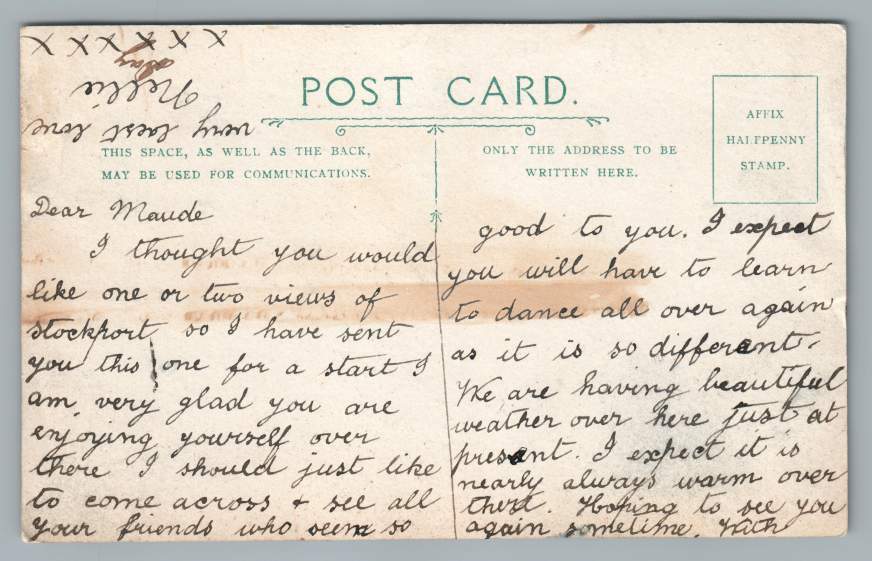 POST CARD.
THIS SPACE, AS WELL AS THE BACK,
MAY BE USED FOR COMMUNICATIONS.
ONLY THE ADDRESS TO BE
WRITTEN HERE.
AFFIX
HALFPENNY
STAMP.
Dear Maude
I thought you would
like one or two views of
stockport so I have sent
you this one for a start I
am very glad you are
enjoying yourself over
there I should just like
to come across + see all
your friends who seem so
good to you. I expect
you will have to learn
to dance all over again
as it is so different.
We are having beautiful
weather over here just at
present. I expect it is
nearly always warm over
there. Hoping to see you
again sometime. With
very best love
Nellie
X X X X X X X